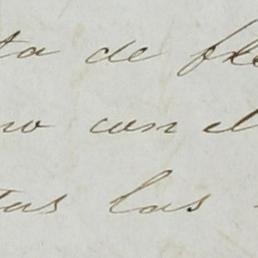 ta de fre
no con el
tas las